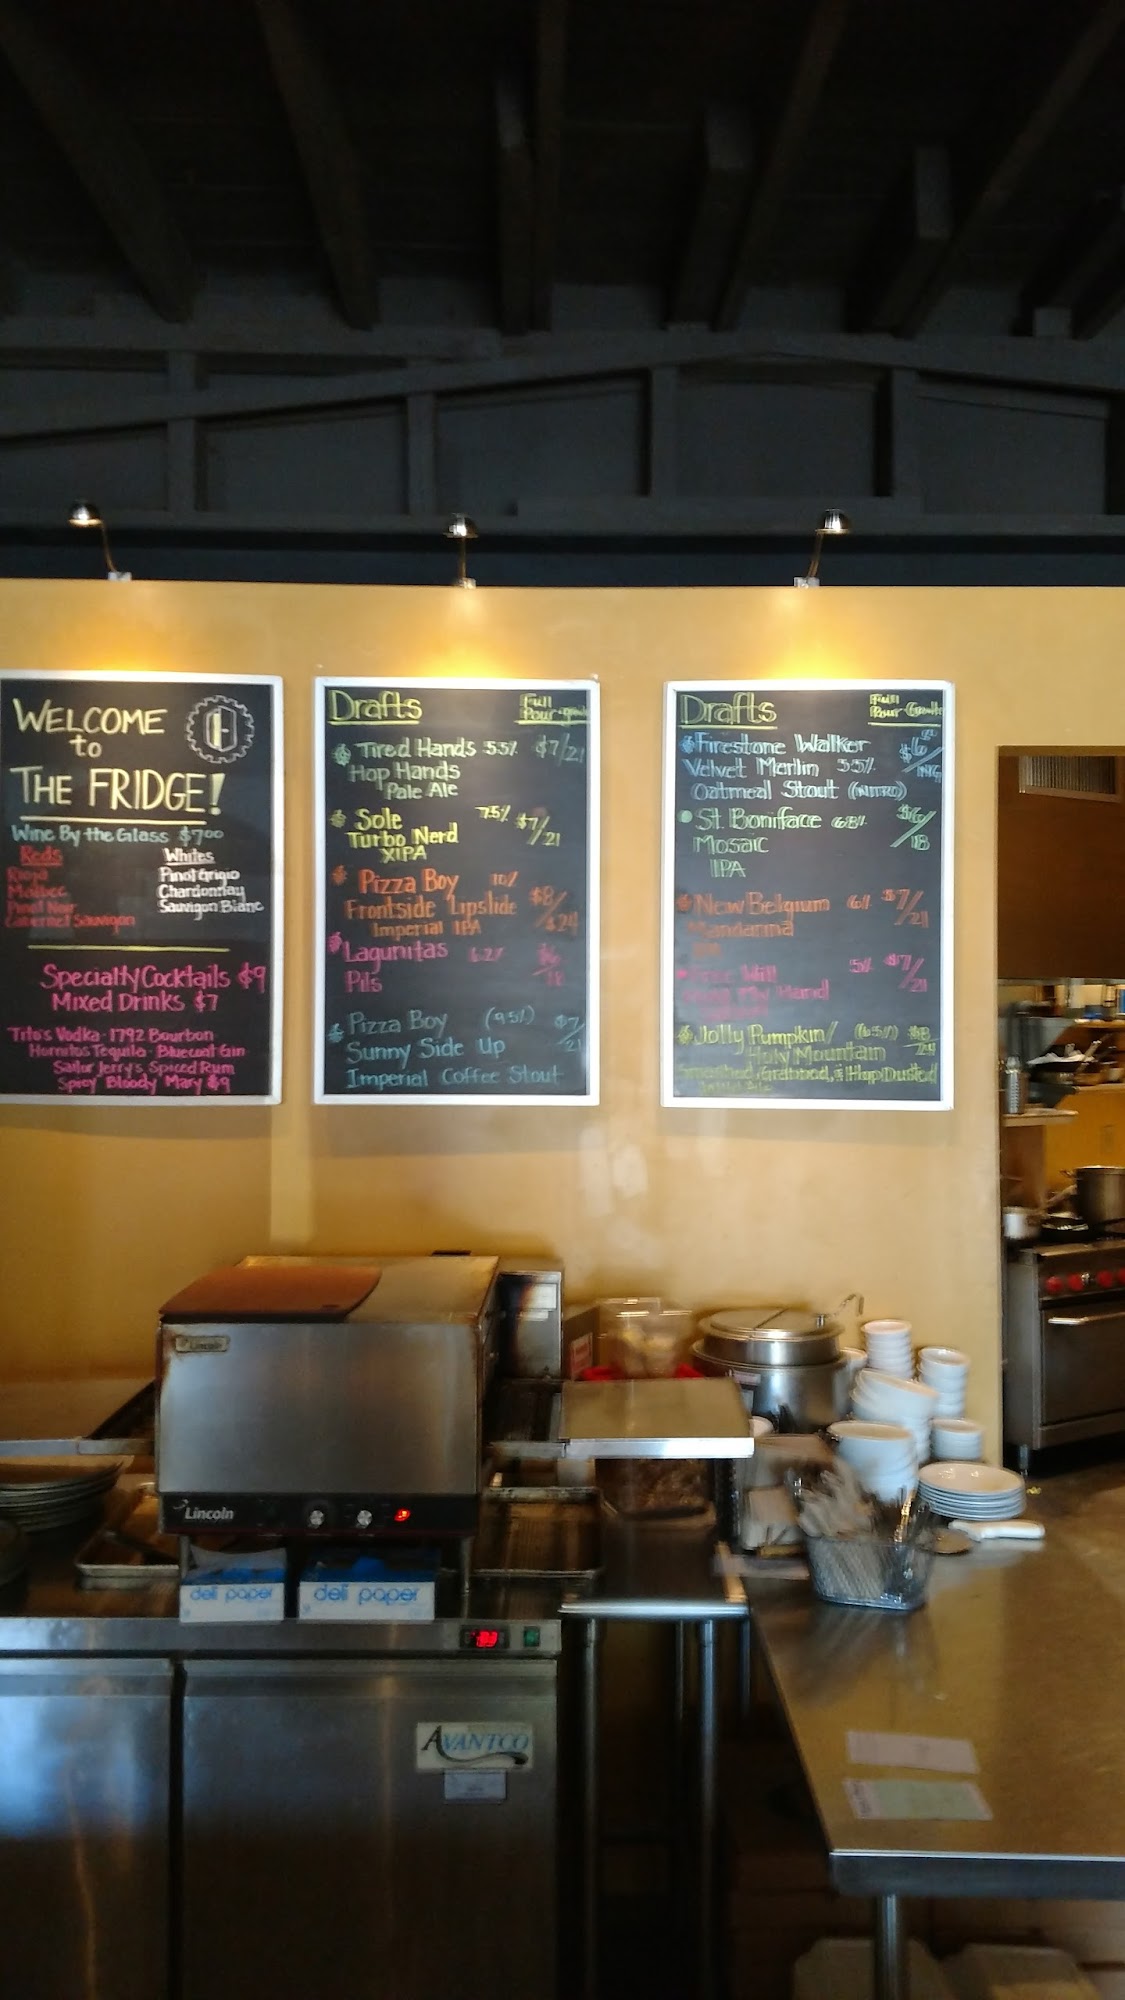 WELCOME
to
THE FRIDGE!
Wine By the Glass $7.00
Reds
Rioja
Malbec
Pinot Noir
Cabernet Sauvignon
Whites
Pinot Grigio
Chardonnay
Sauvignon Blanc
Specialty Cocktails $9
Mixed Drinks $7
Tito's Vodka · 1792 Bourbon
Hornitos Tequila · Bluecoat Gin
Sailor Jerry's Spiced Rum
Spicy Bloody Mary $9
Drafts
Full
Pour
Tired Hands 5.5% $7/21
Hop Hands
Pale Ale
Sole 7.5% $7/21
Turbo Nerd
XIPA
Pizza Boy 10% $8/$24
Frontside Lipslide
Imperial IPA
Lagunitas 6.2% $6/18
Pils
Pizza Boy (9.5%) $7/21
Sunny Side Up
Imperial Coffee Stout
Drafts
Full
Pour Growler
Firestone Walker $6
Velvet Merlin 5.5%
Oatmeal Stout (NITRO)
St. Boniface 6.8% $6/18
Mosaic
IPA
New Belgium 6% $7/21
Mandarina
Free Will 5% $7/21
My Hand
Jolly Pumpkin/ (6.5%) $8/24
Holy Mountain
Smashed, Grabbed, & Hop Dusted
Lincoln
Lincoln
deli paper
deli paper
AVANTCO